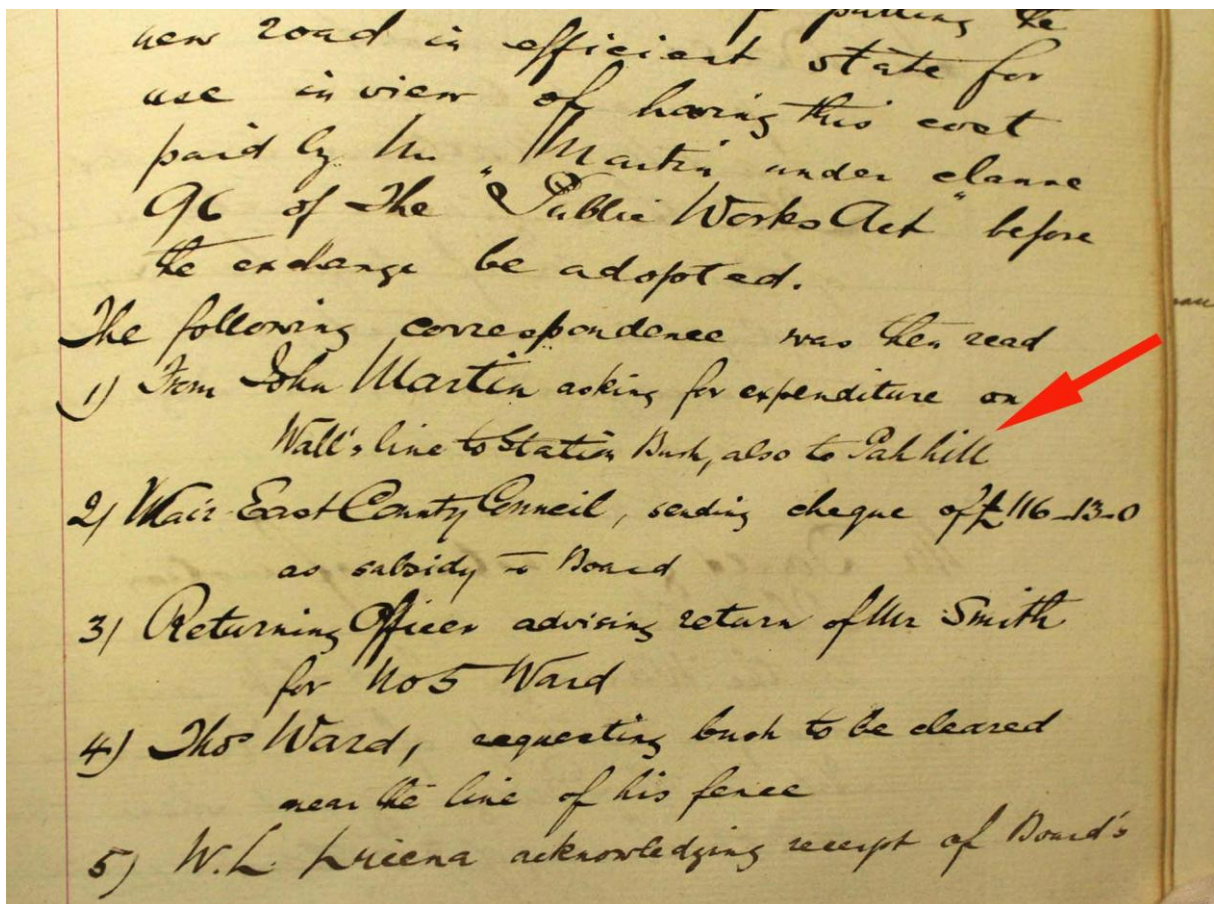 putting the
new road in efficient state for
use in view of having this cost
paid by Mr Martin under clause
96 of The "Public Works Act" before
the exchange be adopted.
The following correspondence was then read
1) From John Martin asking for expenditure on
Wall's line to Station Bush, also to Pah hill
2) Wair. East County Council, sending cheque of £116-13-0
as subsidy to Board
3) Returning Officer advising return of Mr Smith
for No 5 Ward
4) Thos Ward, requesting bush to be cleared
near the line of his fence
5) W. L. acknowledging receipt of Board's